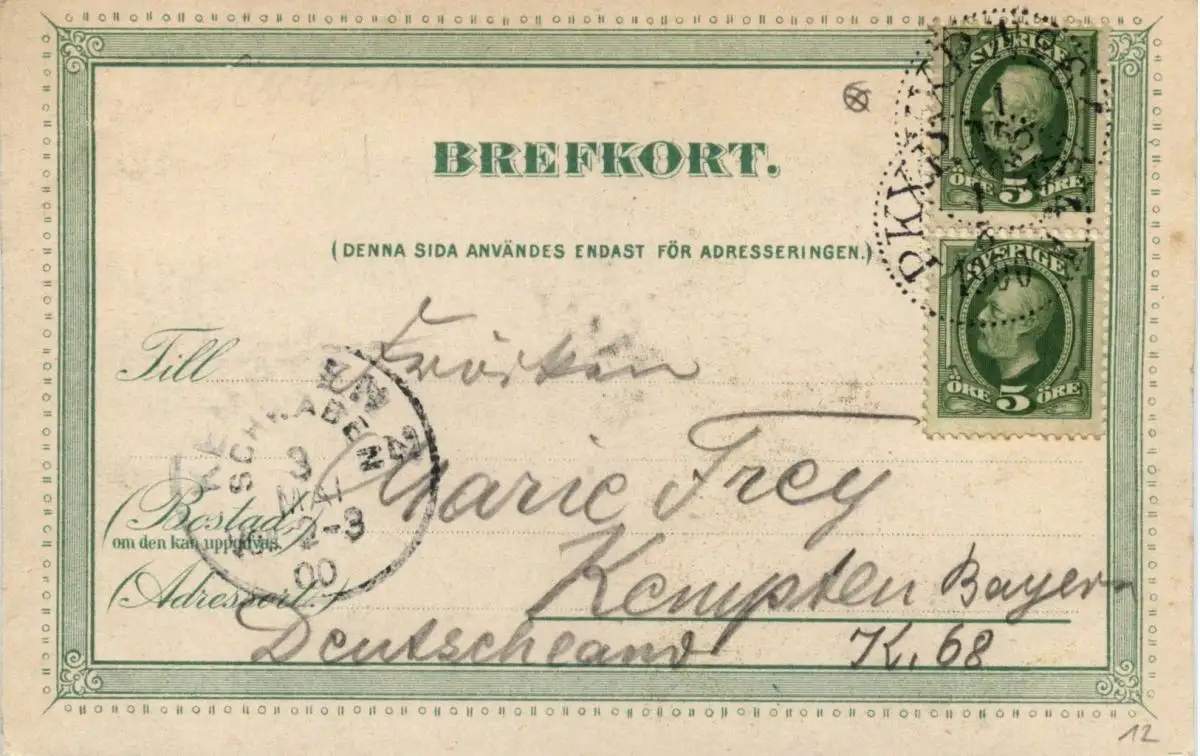 BREFKORT.
(DENNA SIDA ANVÄNDES ENDAST FÖR ADRESSERINGEN.)
SVERIGE
ÖRE 5 ÖRE
SVERIGE
ÖRE 5 ÖRE
1900
Till Fröken
Marie Frey
(Bostad)
om den kan uppgifvas.
Kempten Bayern
(Adressort.)
Deutschland K. 68
SCHWABEN
3
MAI
2-3
00
12